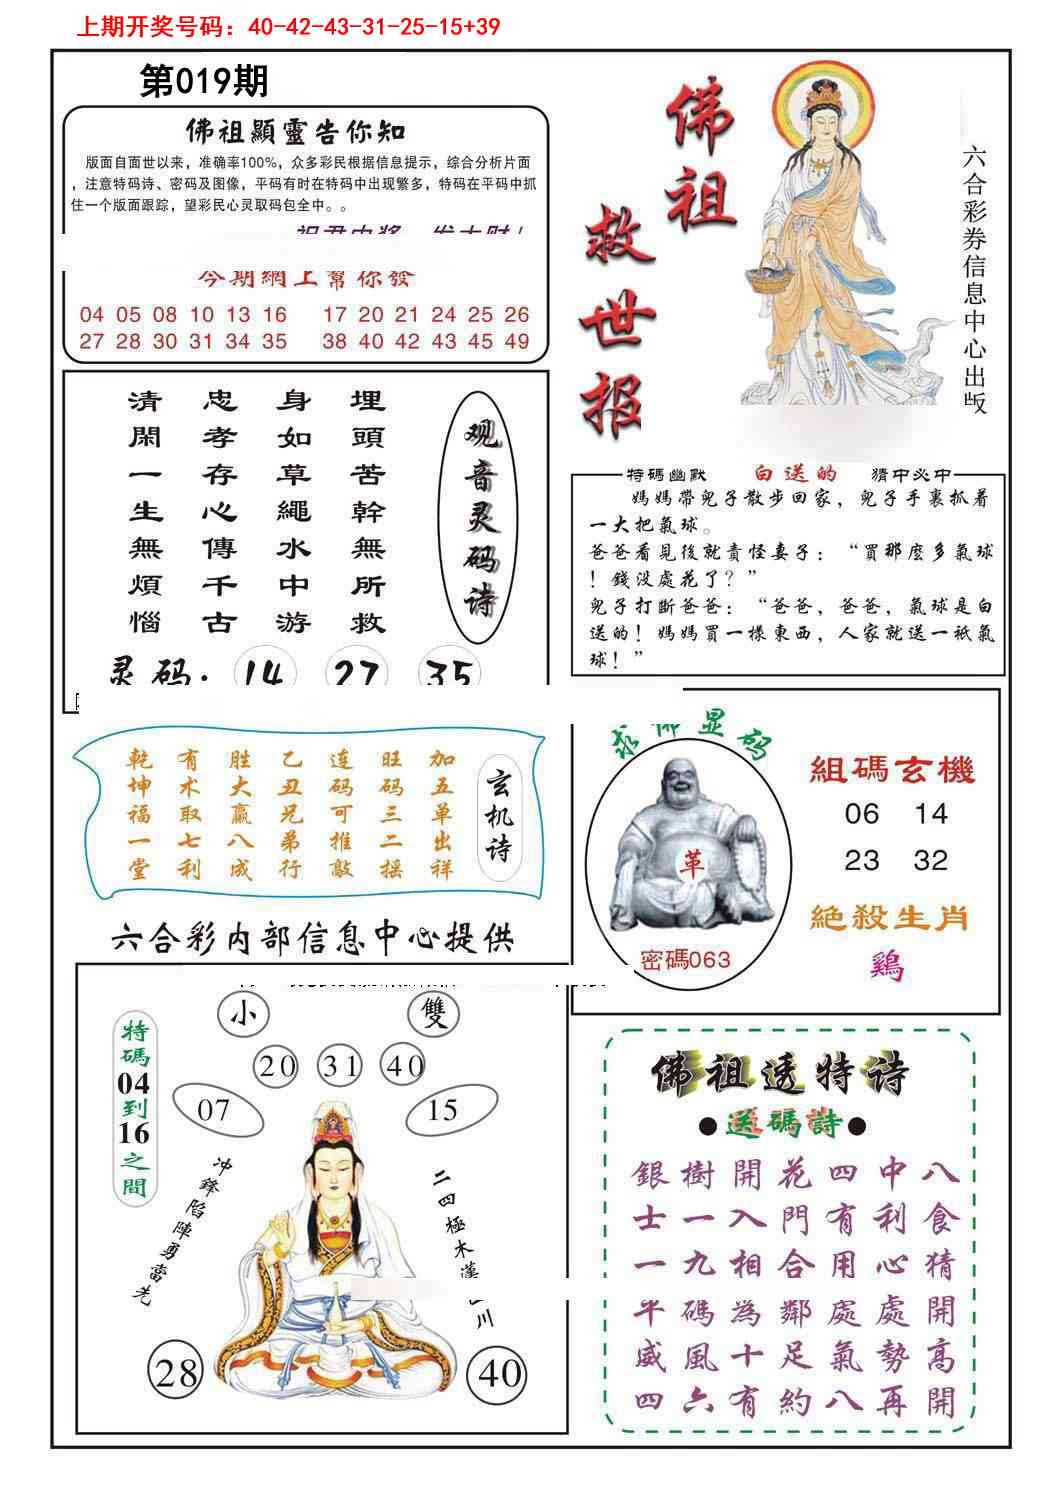 上期开奖号码：40-42-43-31-25-15+39
第019期
佛祖顯靈告你知
版面自面世以来，准确率100%，众多彩民根据信息提示，综合分析片面
，注意特码诗、密码及图像，平码有时在特码中出现繁多，特码在平码中抓
住一个版面跟踪，望彩民心灵取码包全中。。
今期網上幫你發
04 05 08 10 13 16 17 20 21 24 25 26
27 28 30 31 34 35 38 40 42 43 45 49
佛祖
救世报
六合彩券信息中心出版
观音灵码诗
埋頭苦幹無所救
身如草繩水中游
忠孝存心傳千古
清閑一生無煩惱
灵码：14 27 35
特碼幽默 白送的 猜中必中
媽媽帶兒子散步回家，兒子手裏抓着
一大把氣球。
爸爸看見後就責怪妻子：“買那麼多氣球
！錢没處花了？”
兒子打斷爸爸：“爸爸，爸爸，氣球是白
送的！媽媽買一樣東西，人家就送一衹氣
球！”
玄机诗
加五单出祥
旺码三二摇
连码可推敲
乙丑兄弟行
胜大赢八成
有术取七利
乾坤福一堂
求佛显码
革
密碼063
組碼玄機
06 14
23 32
絶殺生肖
鷄
六合彩内部信息中心提供
小 雙
20 31 40
07 15
特碼04到16之間
冲鋒陷陣勇當先
二四極木漢
川
28 40
佛祖透特诗
●送碼詩●
銀樹開花四中八
士一入門有利食
一九相合用心猜
平碼為鄰處處開
威風十足氣勢高
四六有約八再開